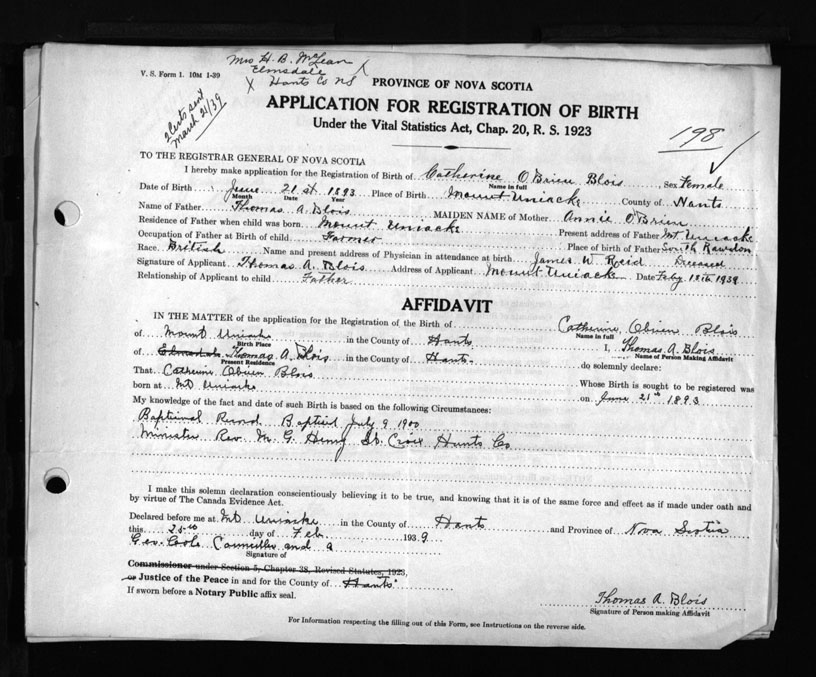 Mrs H. B. McLean
V. S. Form 1. 10M 1-39
Elmsdale
X Hants Co NS
PROVINCE OF NOVA SCOTIA
2 Certs sent
March 21/39
APPLICATION FOR REGISTRATION OF BIRTH
Under the Vital Statistics Act, Chap. 20, R. S. 1923
198
TO THE REGISTRAR GENERAL OF NOVA SCOTIA
I hereby make application for the Registration of Birth of Catherine O'Brien Blois Sex Female
Name in full
Date of Birth June 21st 1893 Place of Birth Mount Uniacke County of Hants
Month Date Year
Name of Father Thomas A. Blois MAIDEN NAME of Mother Annie O'Brien
Residence of Father when child was born Mount Uniacke Present address of Father Mt Uniacke
Occupation of Father at Birth of child Farmer Place of birth of Father South Rawdon
Race British Name and present address of Physician in attendance at birth James W. Reid Deceased
Signature of Applicant Thomas A. Blois Address of Applicant Mount Uniacke Date Feby 18th 1939
Relationship of Applicant to child Father
AFFIDAVIT
IN THE MATTER of the application for the Registration of the Birth of Catherine Obrien Blois
Name in full
of Mount Uniacke in the County of Hants I, Thomas A. Blois
Birth Place Name of Person Making Affidavit
of Thomas A. Blois in the County of Hants do solemnly declare:
Present Residence
That Catherine Obrien Blois Whose Birth is sought to be registered was
born at Mt Uniacke on June 21st 1893
My knowledge of the fact and date of such Birth is based on the following Circumstances:
Baptismal Record Baptised July 9 1900
Minister Rev. M. G. Henry St. Croix Hants Co
I make this solemn declaration conscientiously believing it to be true, and knowing that it is of the same force and effect as if made under oath and
by virtue of The Canada Evidence Act.
Declared before me at Mt Uniacke in the County of Hants and Province of Nova Scotia
this day of Feb. 1939
Geo. Cole Councillor and a
Signature of
Commissioner under Section 5, Chapter 38, Revised Statutes, 1923,
or Justice of the Peace in and for the County of Hants
If sworn before a Notary Public affix seal.
Thomas A. Blois
Signature of Person making Affidavit
For Information respecting the filling out of this Form, see Instructions on the reverse side.